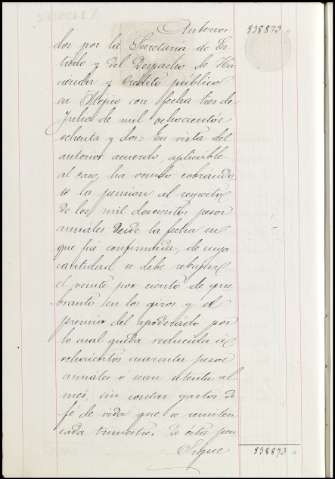 938873
dos por la Secretaría de Es-
tado y del Despacho de Ha-
cienda y Crédito público
en Mégico con fecha tres de
Julio de mil ochocientos
ochenta y dos en vista del
anterior acuerdo aplicable
al caso, ha venido cobrando
la pension al respecto
de los mil doscientos pesos
anuales desde la fecha en
que fué confirmada; de cuya
cantidad se debe
el veinte por ciento de que-
branto en los giros y el
premio del apoderado por
lo cual queda reducida á
ochocientos cuarenta pesos
anuales ó sean setenta al
mes, sin contar gastos de
fé de vida que
cada trimestre. De esta pen-
Sigue
938873